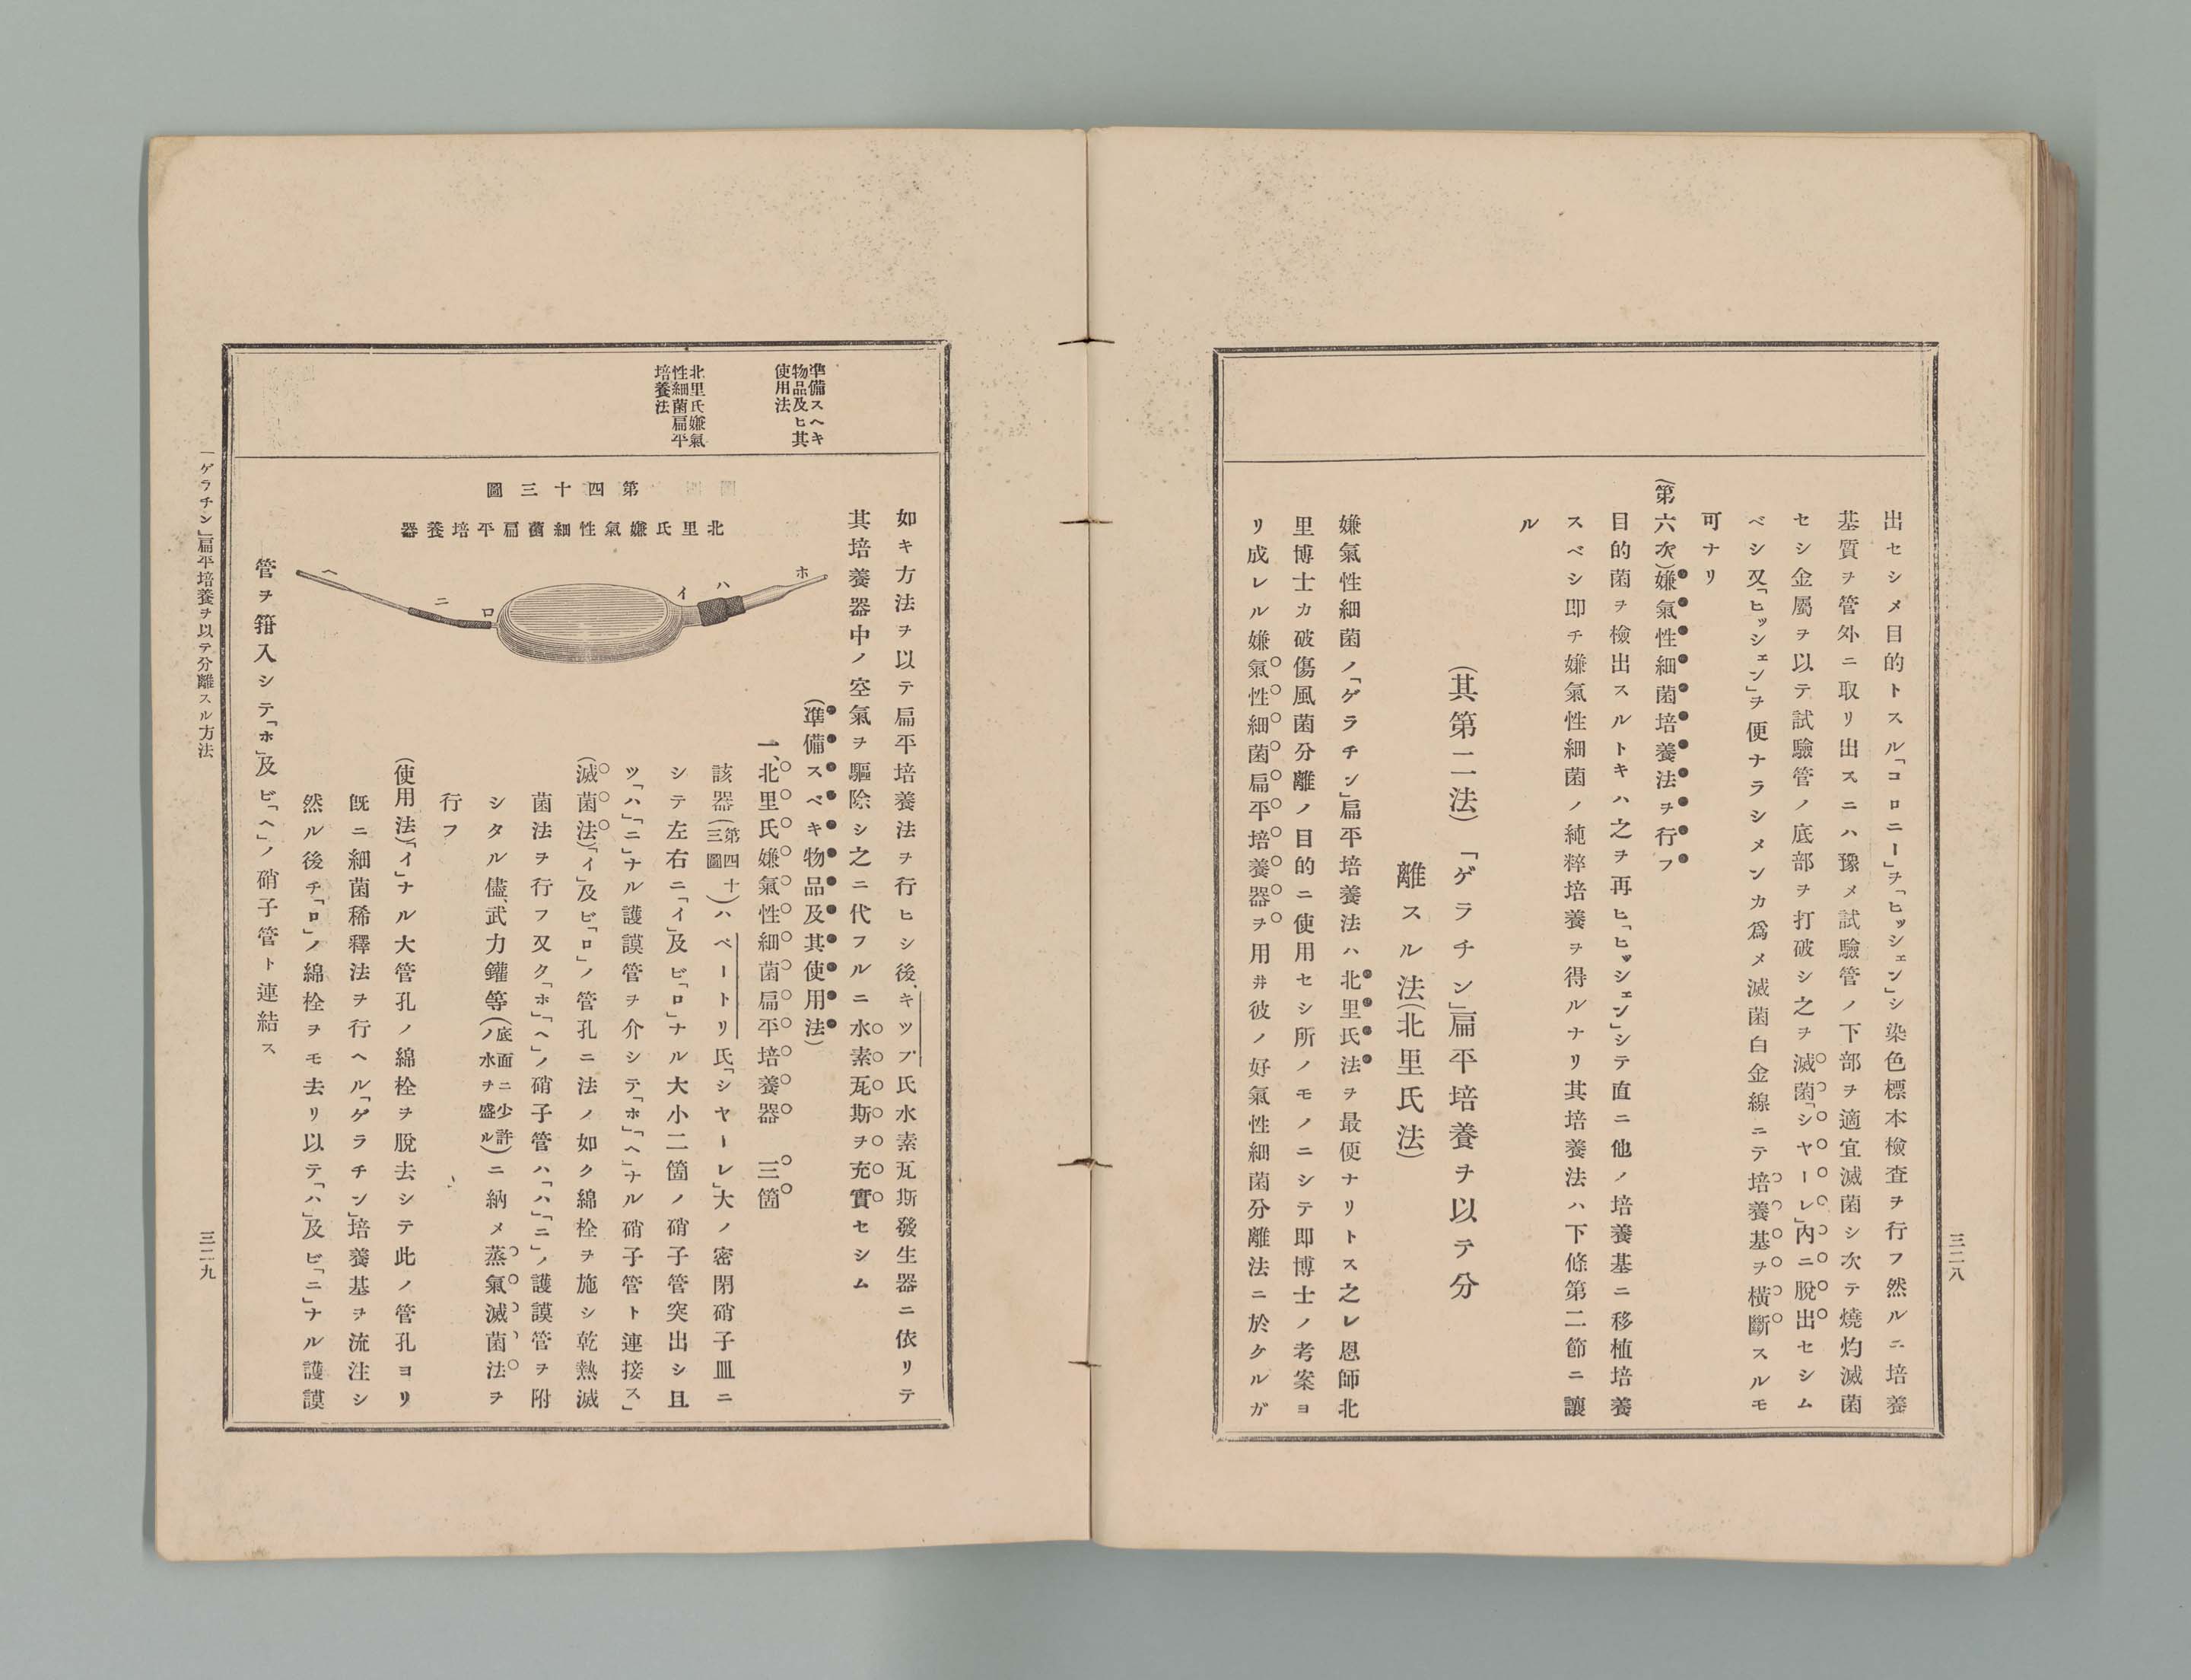 出セシメ目的トスル「コロニー」ヲ「ヒッシェン」シ染色標本檢査ヲ行フ然ルニ培養
基質ヲ管外ニ取リ出スニハ豫メ試驗管ノ下部ヲ適宜滅菌シ次テ燒灼滅菌
セシ金屬ヲ以テ試驗管ノ底部ヲ打破シ之ヲ滅菌「シヤーレ」內ニ脫出セシム
ベシ又「ヒッシェン」ヲ便ナラシメンカ爲メ滅菌白金線ニテ培養基ヲ橫斷スルモ
可ナリ
(第六次)嫌氣性細菌培養法ヲ行フ
目的菌ヲ檢出スルトキハ之ヲ再ヒ「ヒッシェン」シテ直ニ他ノ培養基ニ移植培養
スベシ即チ嫌氣性細菌ノ純粹培養ヲ得ルナリ其培養法ハ下條第二節ニ讓
ル
(其第二法)「ゲラチン」扁平培養ヲ以テ分
離スル法(北里氏法)
嫌氣性細菌ノ「ゲラチン」扁平培養法ハ北里氏法ヲ最便ナリトス之レ恩師北
里博士カ破傷風菌分離ノ目的ニ使用セシ所ノモノニシテ即博士ノ考案ヨ
リ成レル嫌氣性細菌扁平培養器ヲ用井彼ノ好氣性細菌分離法ニ於ケルガ
三二八
準備スヘキ
物品及ヒ其
使用法
北里氏嫌氣
性細菌扁平
培養法
如キ方法ヲ以テ扁平培養法ヲ行ヒシ後、キツプ氏水素瓦斯發生器ニ依リテ
其培養器中ノ空氣ヲ驅除シ之ニ代フルニ水素瓦斯ヲ充實セシム
(準備スベキ物品及其使用法)
一、北里氏嫌氣性細菌扁平培養器 三箇
該器(第四十三圖)ハペートリ氏「シヤーレ」大ノ密閉硝子皿ニ
シテ左右ニ「イ」及ビ「ロ」ナル大小二箇ノ硝子管突出シ且
ツ「ハ」「ニ」ナル護謨管ヲ介シテ「ホ」「ヘ」ナル硝子管ト連接ス」
(滅菌法)「イ」及ビ「ロ」ノ管孔ニ法ノ如ク綿栓ヲ施シ乾熱滅
菌法ヲ行フ又タ「ホ」「ヘ」ノ硝子管ハ「ハ」「ニ」ノ護謨管ヲ附
シタル儘、武力鑵等(底面ニ少許ノ水ヲ盛ル)ニ納メ蒸氣滅菌法ヲ
行フ
(使用法)「イ」ナル大管孔ノ綿栓ヲ脫去シテ此ノ管孔ヨリ
既ニ細菌稀釋法ヲ行ヘル「ゲラチン」培養基ヲ流注シ
然ル後チ「ロ」ノ綿栓ヲモ去リ以テ「ハ」及ビ「ニ」ナル護謨
管ヲ箝入シテ「ホ」及ビ「ヘ」ノ硝子管ト連結ス
第四十三圖
北里氏嫌氣性細菌扁平培養器
ホ
ハ
イ
ロ
ニ
ヘ
「ゲラチン」扁平培養ヲ以テ分離スル方法
三二九